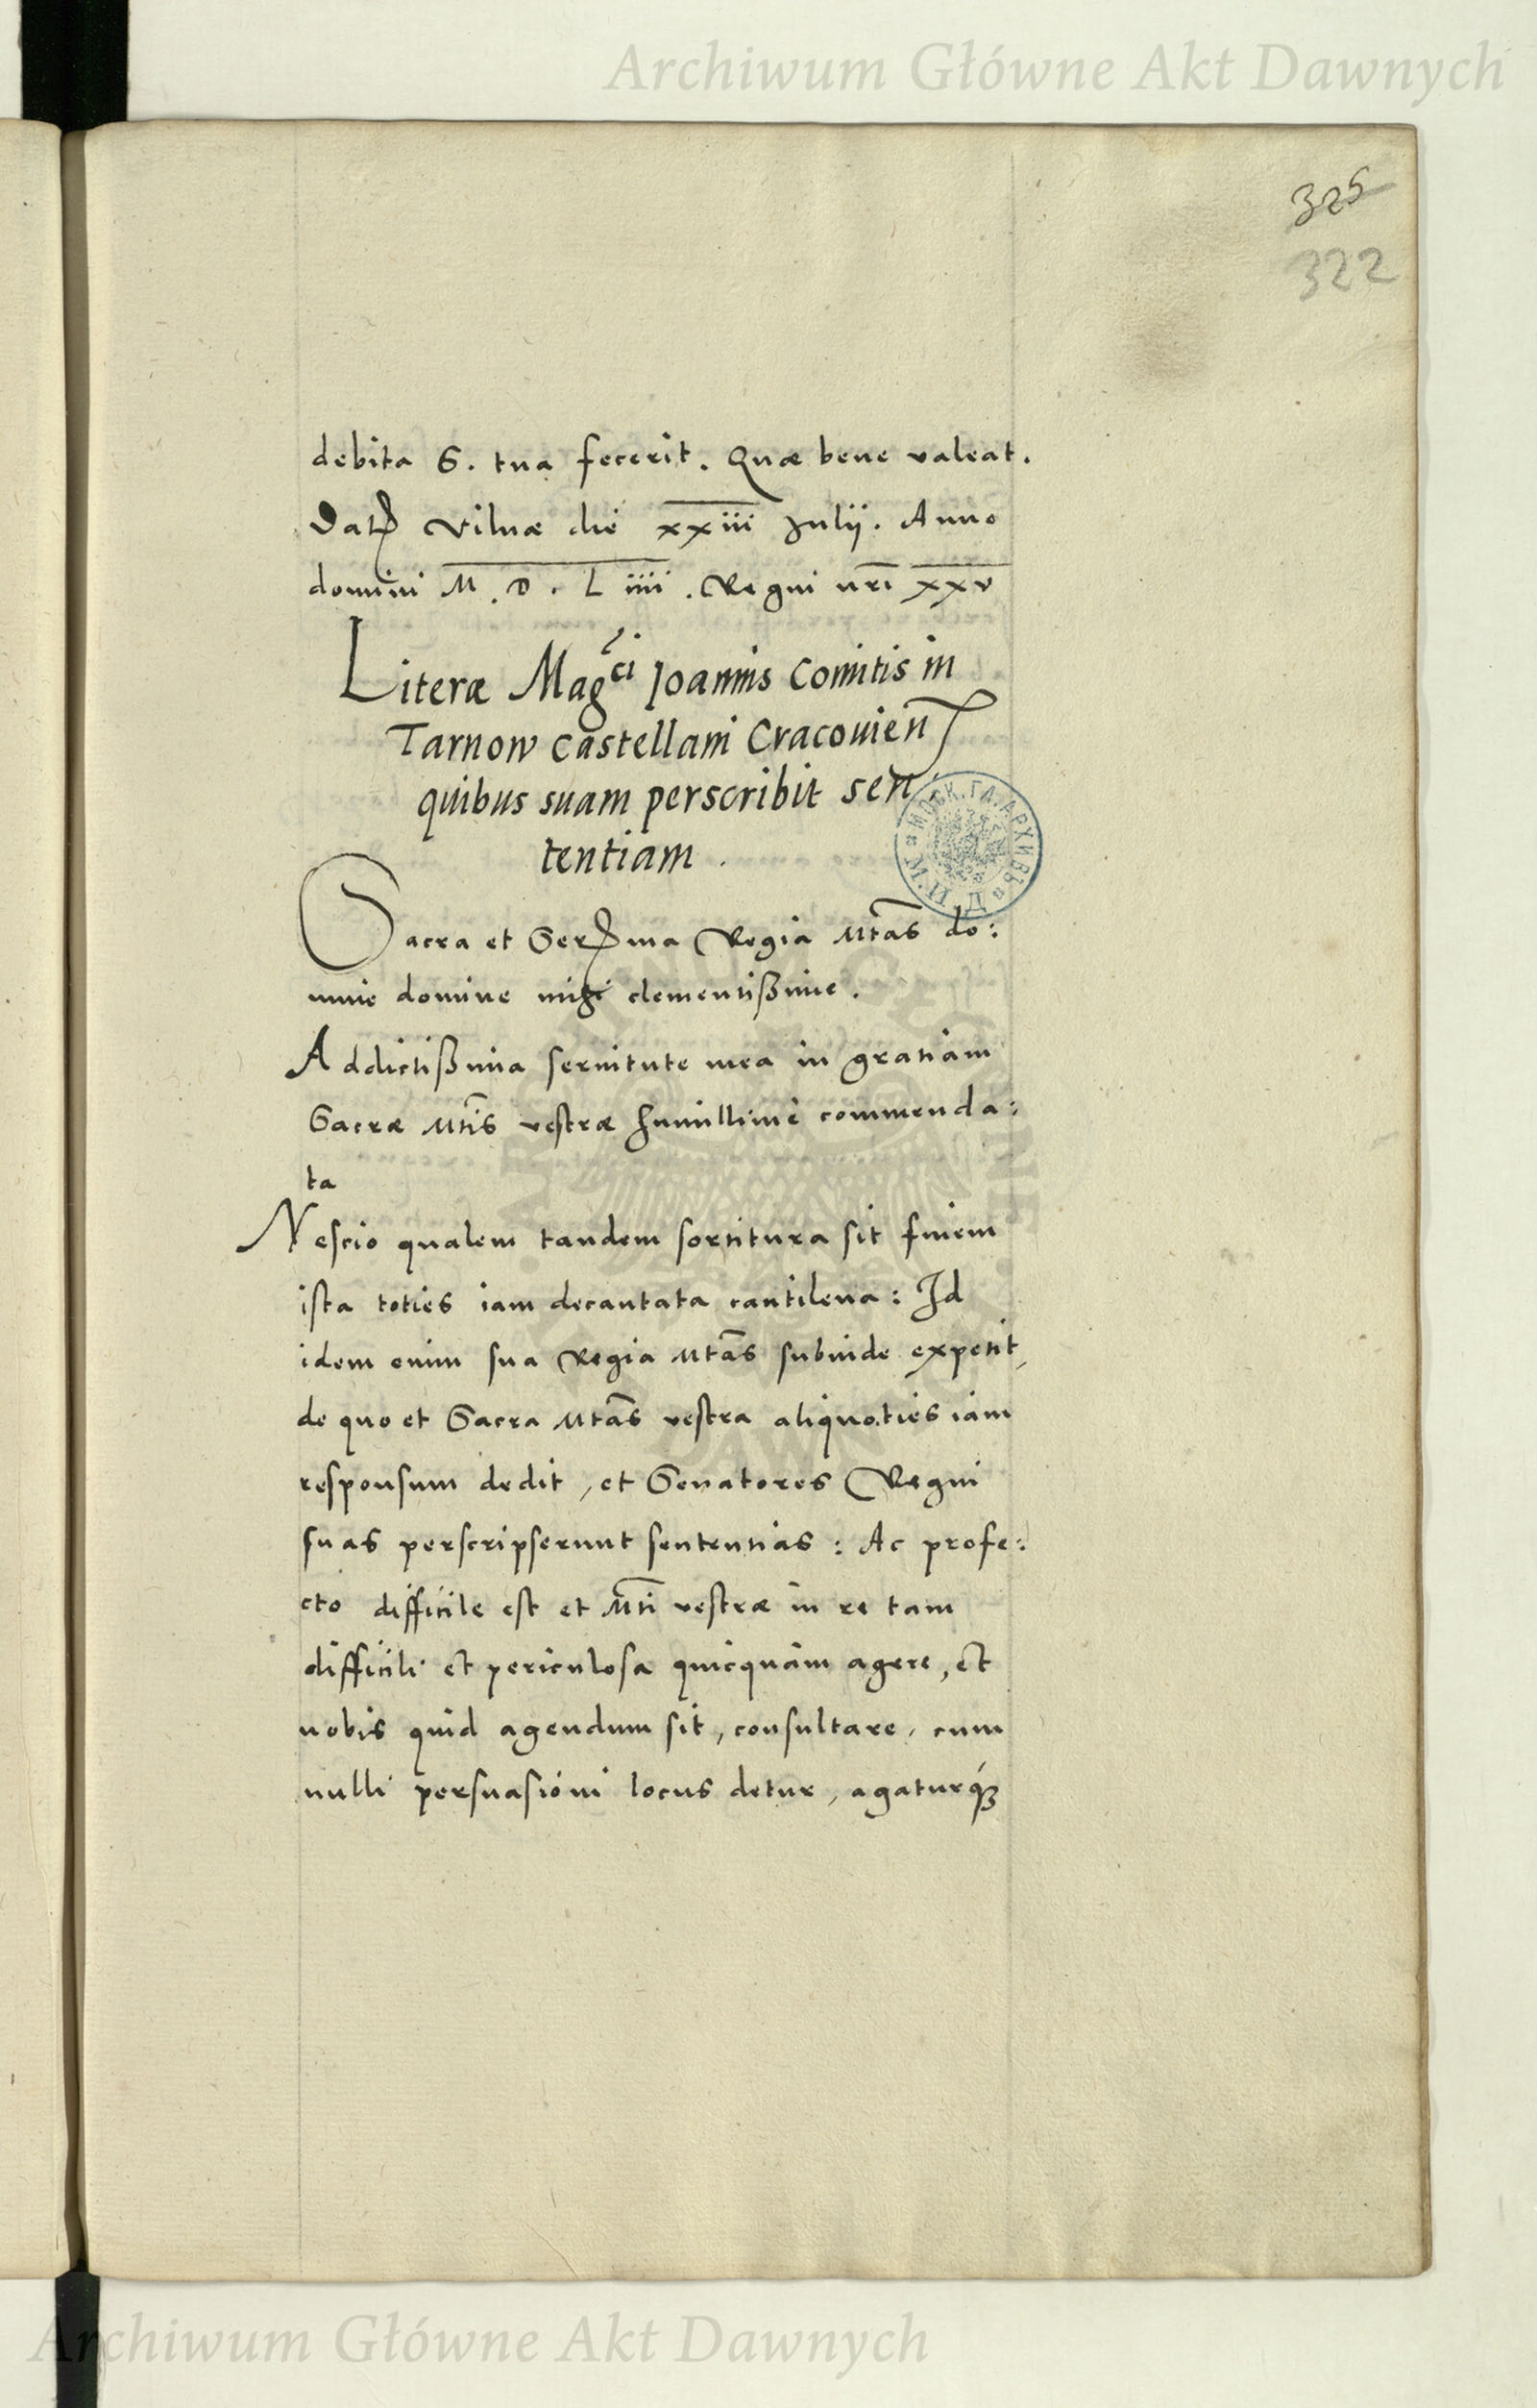 Archiwum Główne Akt Dawnych
325
322
debita S. tua fecerit. Quæ bene valeat.
Dat Vilnæ die xxiii Julij. Anno
domini M.D.L iiii. Regni nri xxv
Literæ Magci Joannis Comitis in
Tarnow Castellani Cracovien
quibus suam perscribit sen,
tentiam.
Sacra et Serma Regia Mtas do:
mine domine mihi clementißime.
Addictißima servitute mea in gratiam
Sacræ Mtis vestræ humillime commenda:
ta
Nescio qualem tandem sortitura sit finem
ista toties iam decantata cantilena: Id
idem enim sua Regia Mtas subinde expetit,
de quo et Sacra Mtas vestra aliquoties iam
responsum dedit, et Senatores Regni
suas perscripserunt sententias: Ac profe:
cto difficile est et Mti vestræ in re tam
difficili et periculosa quicquam agere, et
nobis quid agendum sit, consultare, cum
nulli persuasioni locus detur, agaturq́ꝫ
Archiwum Główne Akt Dawnych